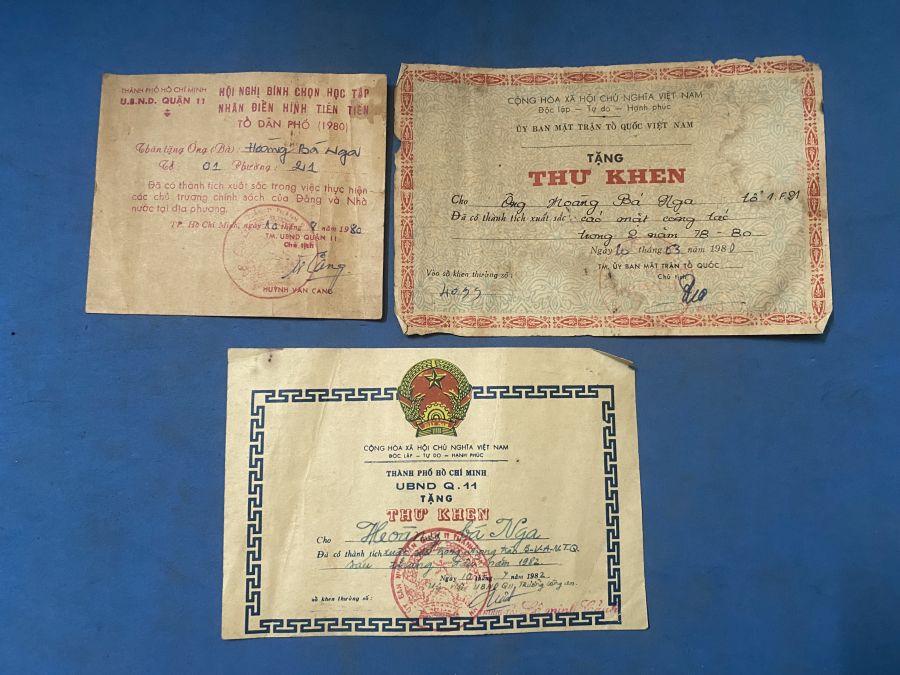 THÀNH PHỐ HỒ CHÍ MINH
U.B.N.D. QUẬN 11
HỘI NGHỊ BÌNH CHỌN HỌC TẬP
NHÂN ĐIỂN HÌNH TIÊN TIẾN
TỔ DÂN PHỐ (1980)
Thân tặng Ông (Bà): Hoàng Bá Nga
Tổ 01 Phường: 21
Đã có thành tích xuất sắc trong việc thực hiện
các chủ trương chính sách của Đảng và Nhà
nước tại địa phương.
TP. Hồ Chí Minh, ngày 20 tháng 8 năm 1980
TM. UBND QUẬN 11
Chủ tịch
HUỲNH VĂN CANG
CỘNG HÒA XÃ HỘI CHỦ NGHĨA VIỆT NAM
Độc lập - Tự do - Hạnh phúc
ỦY BAN MẶT TRẬN TỔ QUỐC VIỆT NAM
TẶNG
THƯ KHEN
Cho Ông Hoàng Bá Nga tổ 1.F.21
Đã có thành tích xuất sắc: các mặt công tác
trong 2 năm 78-80
Ngày 10 tháng 03 năm 198
TM. ỦY BAN MẶT TRẬN TỔ QUỐC
Chủ tịch
Vào sổ khen thưởng số:
CỘNG HÒA XÃ HỘI CHỦ NGHĨA VIỆT NAM
ĐỘC LẬP - TỰ DO - HẠNH PHÚC
THÀNH PHỐ HỒ CHÍ MINH
UBND Q.11
TẶNG
THƯ KHEN
Cho Hoàng bá Nga
Đã có thành tích xuất sắc trong phong trào B.V.A.N.T.Q.
sáu tháng đầu năm 1982
Ngày 10 tháng 7 năm 1982
UBND Q11, Trưởng công an.
số khen thưởng số: